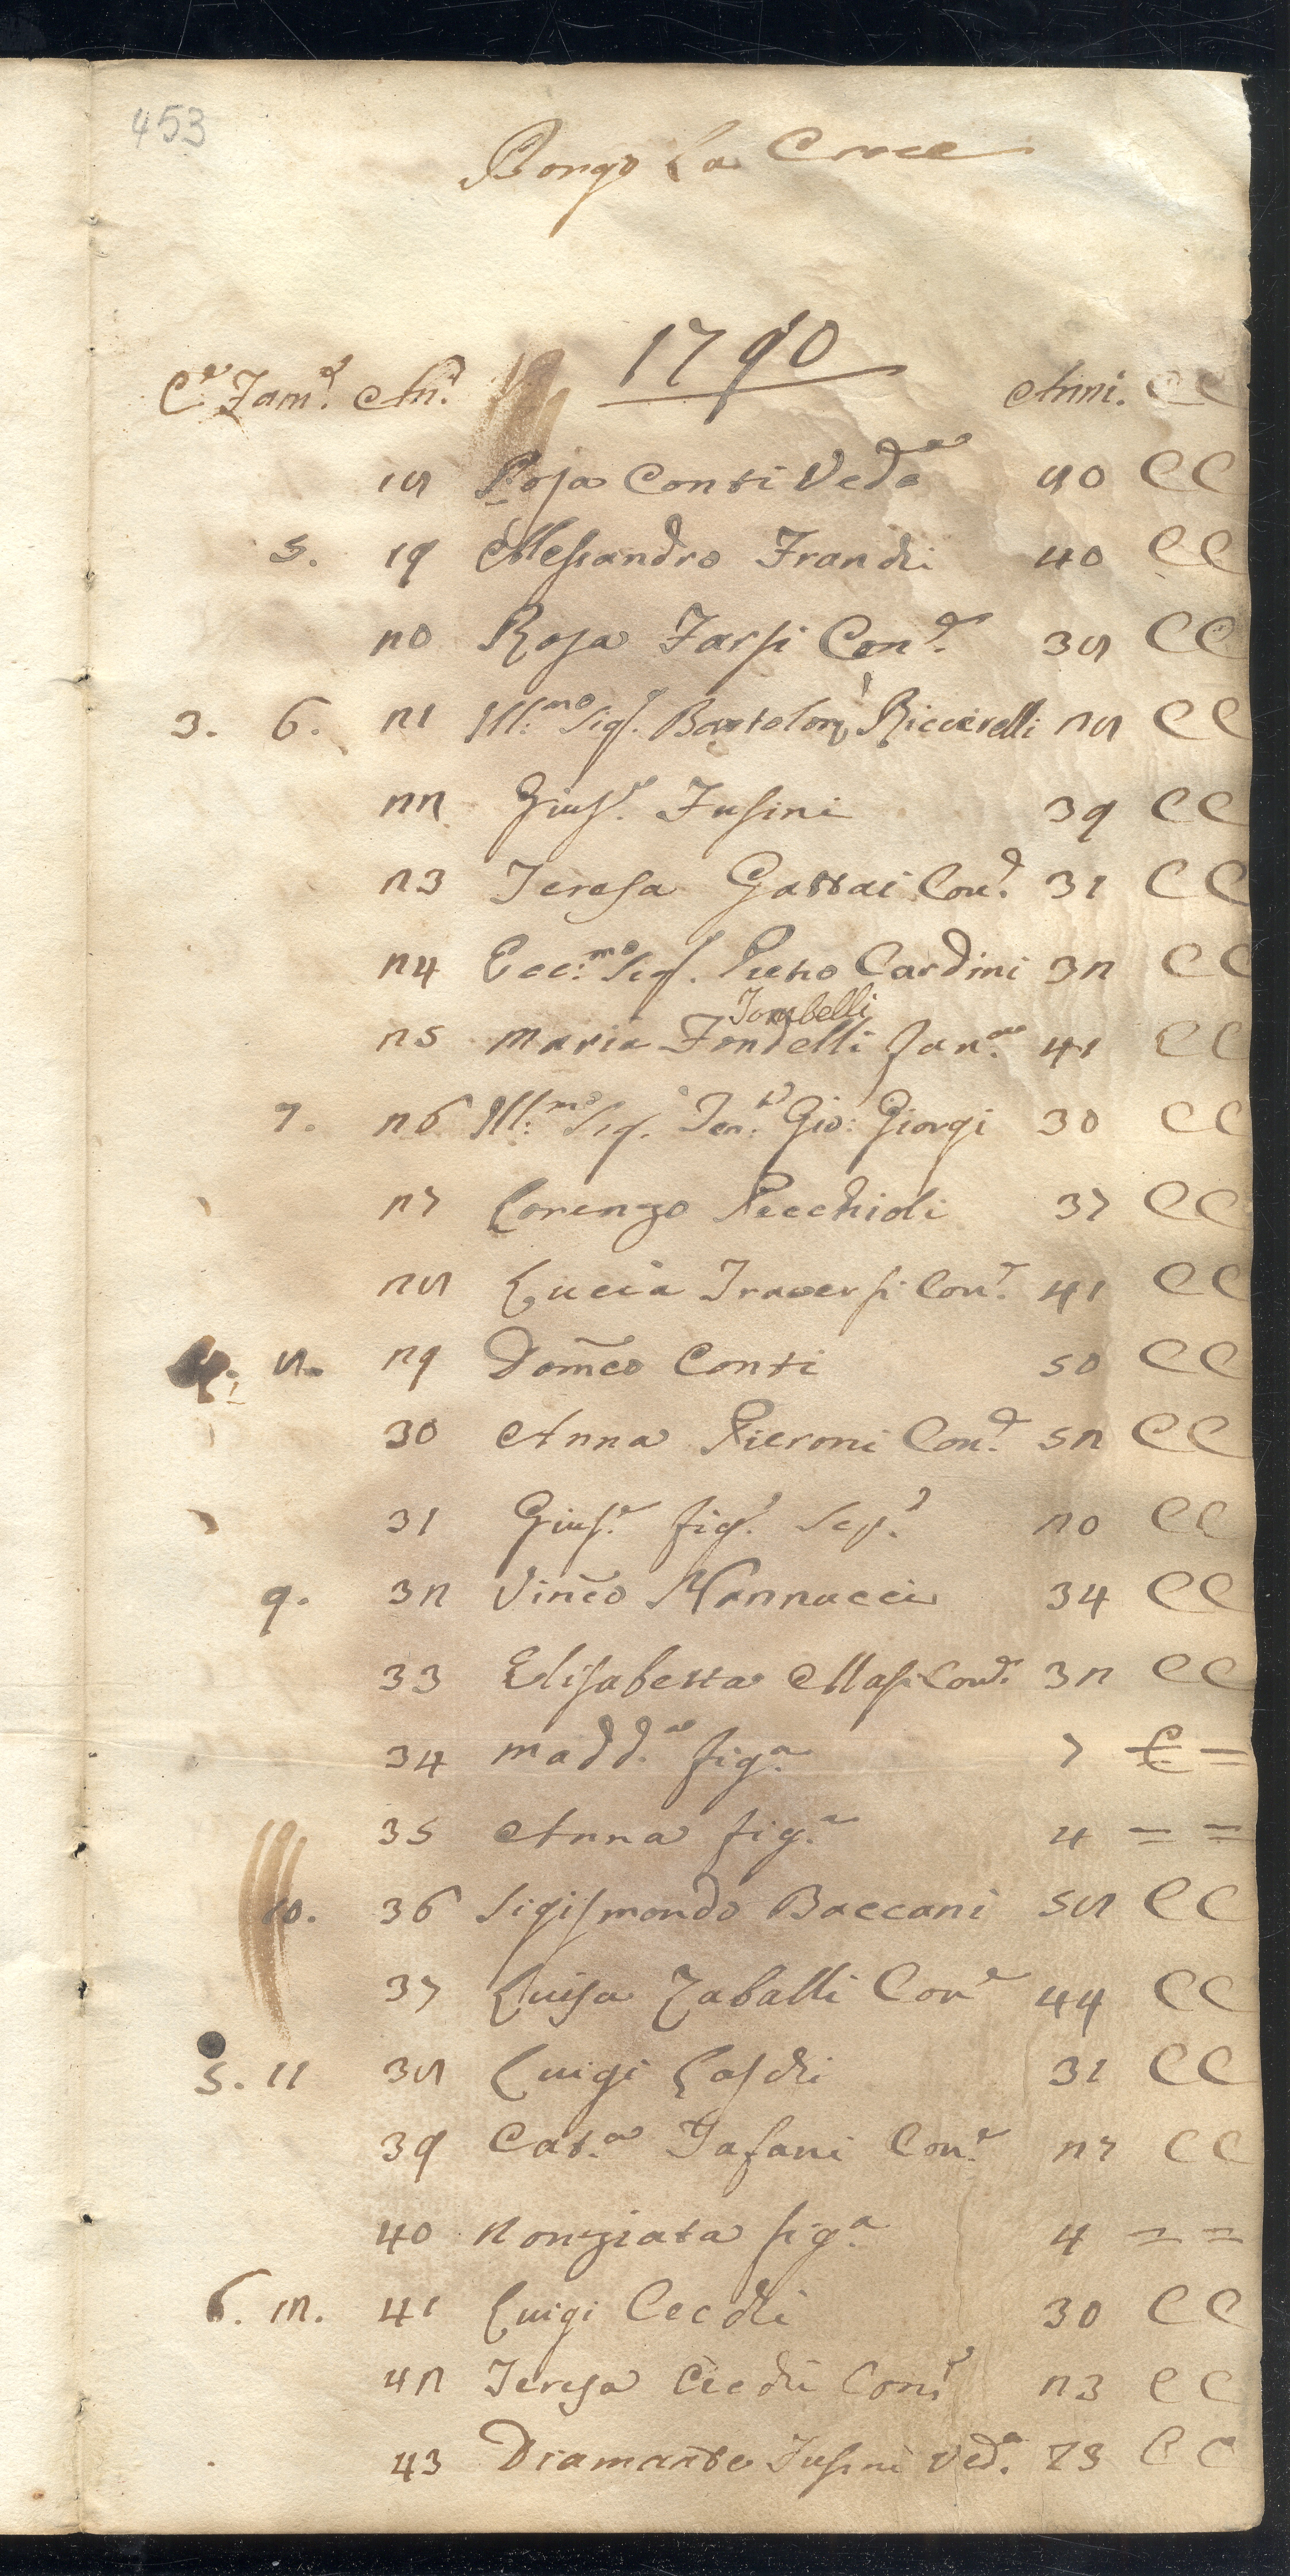 453
Borgo La Croce
1790
Cᵉ Famᵉ. Anᵉ. Anni. CC
18 Rosa Conti Vedᵃ 80 CC
5. 19 Alessandro Franchi 40 CC
20 Rosa Tarsi Conᵉ. 38 CC
3. 6. 21 Ill:ᵐᵒ Sigʳ. Bartolom Ricciarelli 28 CC
22 Giusᵉ. Fusini 39 CC
23 Teresa Gattai Conᵉ. 31 CC
24 Ecc:ᵐᵒ Sigʳ. Pietro Cardini 32 CC
Tombelli
25 Maria Fondelli fanᵃ. 41 CC
7. 26 Ill:ᵐᵒ Sig. Tenᵗᵉ. Gio: Giorgi 30 CC
27 Lorenzo Pecchioli 37 CC
28 Lucia Traversi Conᵉ. 41 CC
4. 8. 29 Dom̃co Conti 50 CC
30 Anna Pieroni Conᵉ. 52 CC
31 Giusᵉ. figᵒ. Sepᵒ. 20 CC
9. 32 Vinc̃o Nannucci 34 CC
33 Elisabetta Masi Conᵉ. 32 CC
34 Maddᵃ. figᵃ. 7 C =
35 Anna figᵃ. 4 = =
10. 36 Sigismondo Baccani 58 CC
37 Luisa Zaballi Conᵉ 44 CC
5. 11 38 Luigi Laschi 31 CC
39 Catᵃ. Tafani Conᵉ. 27 CC
40 Nonziata figᵃ. 4 = =
6. 12. 41 Luigi Cecchi 30 CC
42 Teresa Cecchi Conᵉ 23 CC
43 Diamante Fusini Vedᵃ. 73 CC